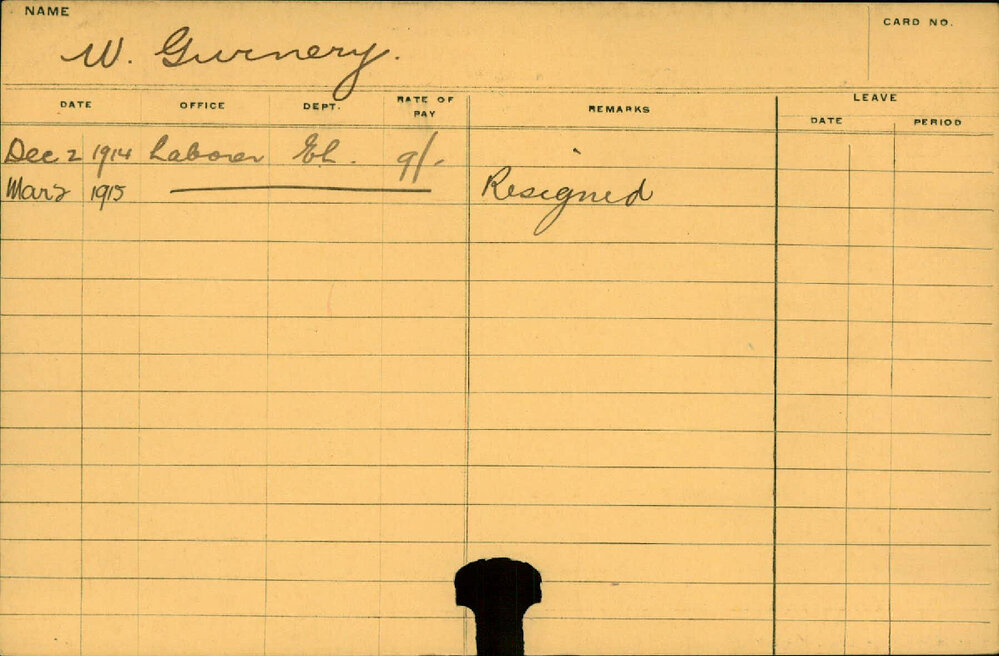 NAME
CARD NO.
W. Gurnery.
DATE OFFICE DEPT. RATE OF PAY REMARKS LEAVE
DATE PERIOD
Dec 2 1914 Laborer El. 9/-
Mar 2 1915 Resigned